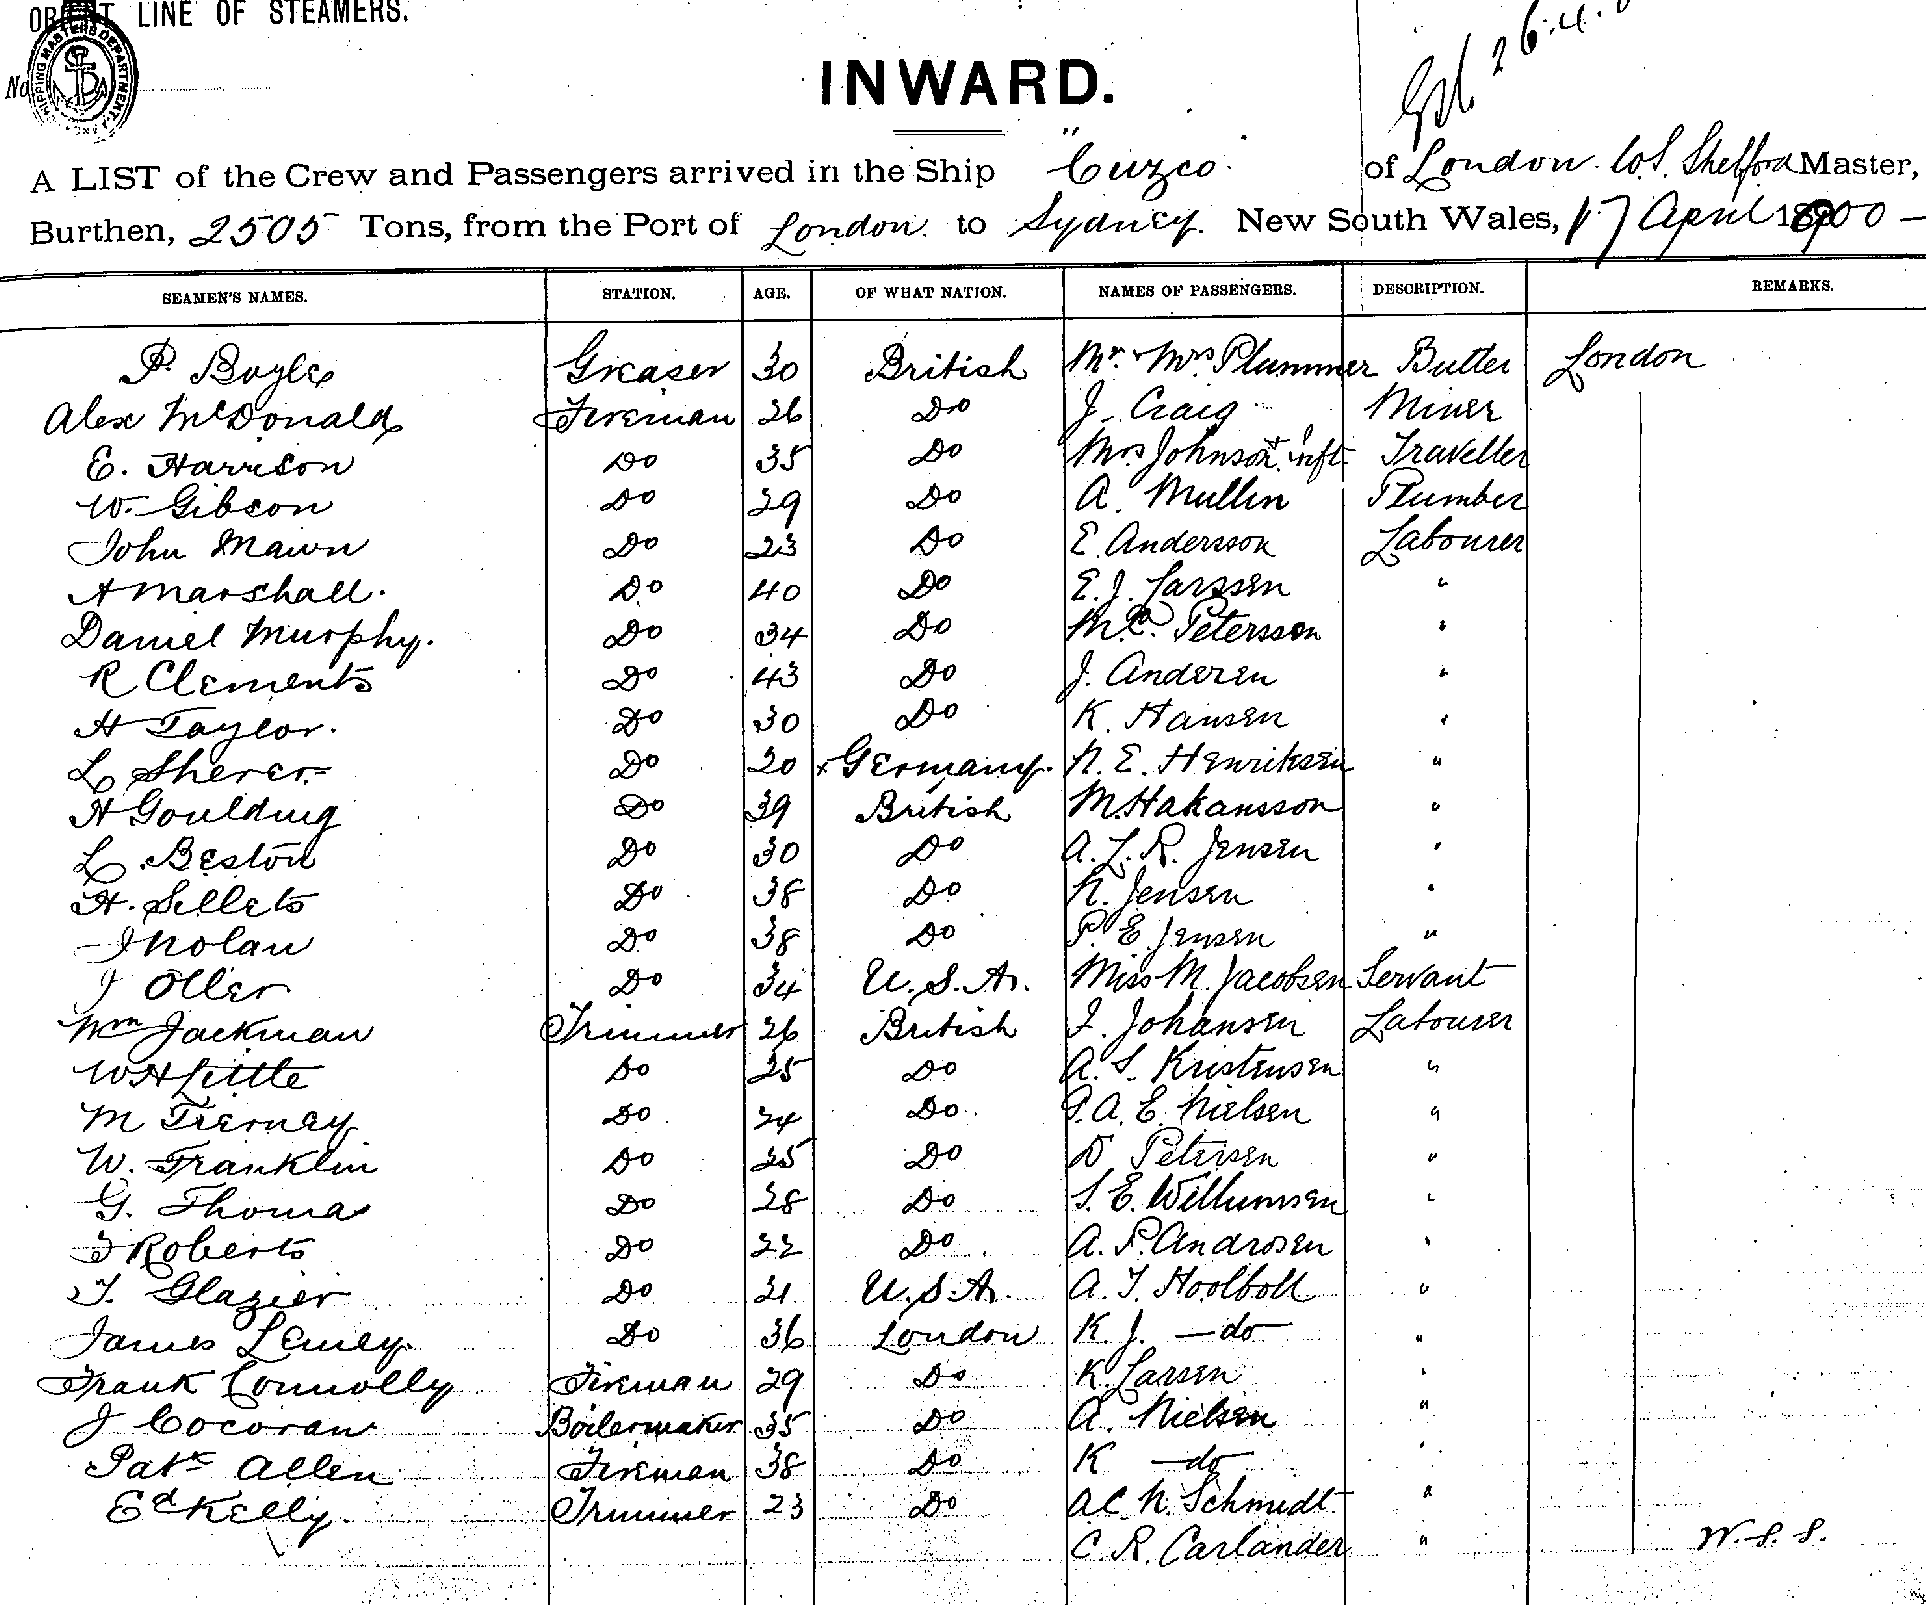 ORIENT LINE OF STEAMERS.
No
INWARD.
26.4.
A LIST of the Crew and Passengers arrived in the Ship "Cuzco" of London. W.S. Shelford Master,
Burthen, 2505 Tons, from the Port of London to Sydney. New South Wales, 17 April 1900 —
SEAMEN'S NAMES. STATION. AGE. OF WHAT NATION. NAMES OF PASSENGERS. DESCRIPTION. REMARKS.
P. Boyle Greaser 30 British Mr. & Mrs Plummer Butler London
Alex McDonald Fireman 26 Do J. Craig Miner
E. Harrison Do 35 Do Mrs Johnson & inft. Traveller
W. Gibson Do 29 Do A. Mullin Plumber
John Mawn Do 23 Do E. Andersson Labourer
A Marshall. Do 40 Do E. J. Larssen "
Daniel Murphy. Do 34 Do M.C. Petersson "
R Clements Do 43 Do J. Anderen "
H Taylor. Do 30 Do K. Hansen "
L Sherer Do 20 x Germany. N. E. Henriksen "
H Goulding Do 39 British M. Hakansson "
L. Beston Do 30 Do A. L. R. Jensen "
H. Sellets Do 38 Do N. Jensen "
J Nolan Do 38 Do P. E. Jensen "
J Oller Do 34 U.S.A. Miss M. Jacobsen Servant
Wm Jackman Trimmer 26 British J. Johansen Labourer
W H Little Do 25 Do A. S. Kristensen "
M Tierney Do 24 Do P. A. E. Nielsen "
W. Franklin Do 25 Do D Petersen "
G. Thomas Do 28 Do S. E. Willumsen "
J Roberts Do 22 Do A. P. Androsen "
T. Glazier Do 21 U.S.A. A. T. Hoolboll "
James Lemey. Do 36 London K. J. — do — "
Frank Connolly Fireman 29 Do K. Larsen "
J Cocoran Boilermaker 35 Do A. Nielsen "
Patk Allen Fireman 38 Do K — do "
Ed Kelly. Trimmer 23 Do A C. N. Schmidt "
C. R. Carlander "
W. S. S.